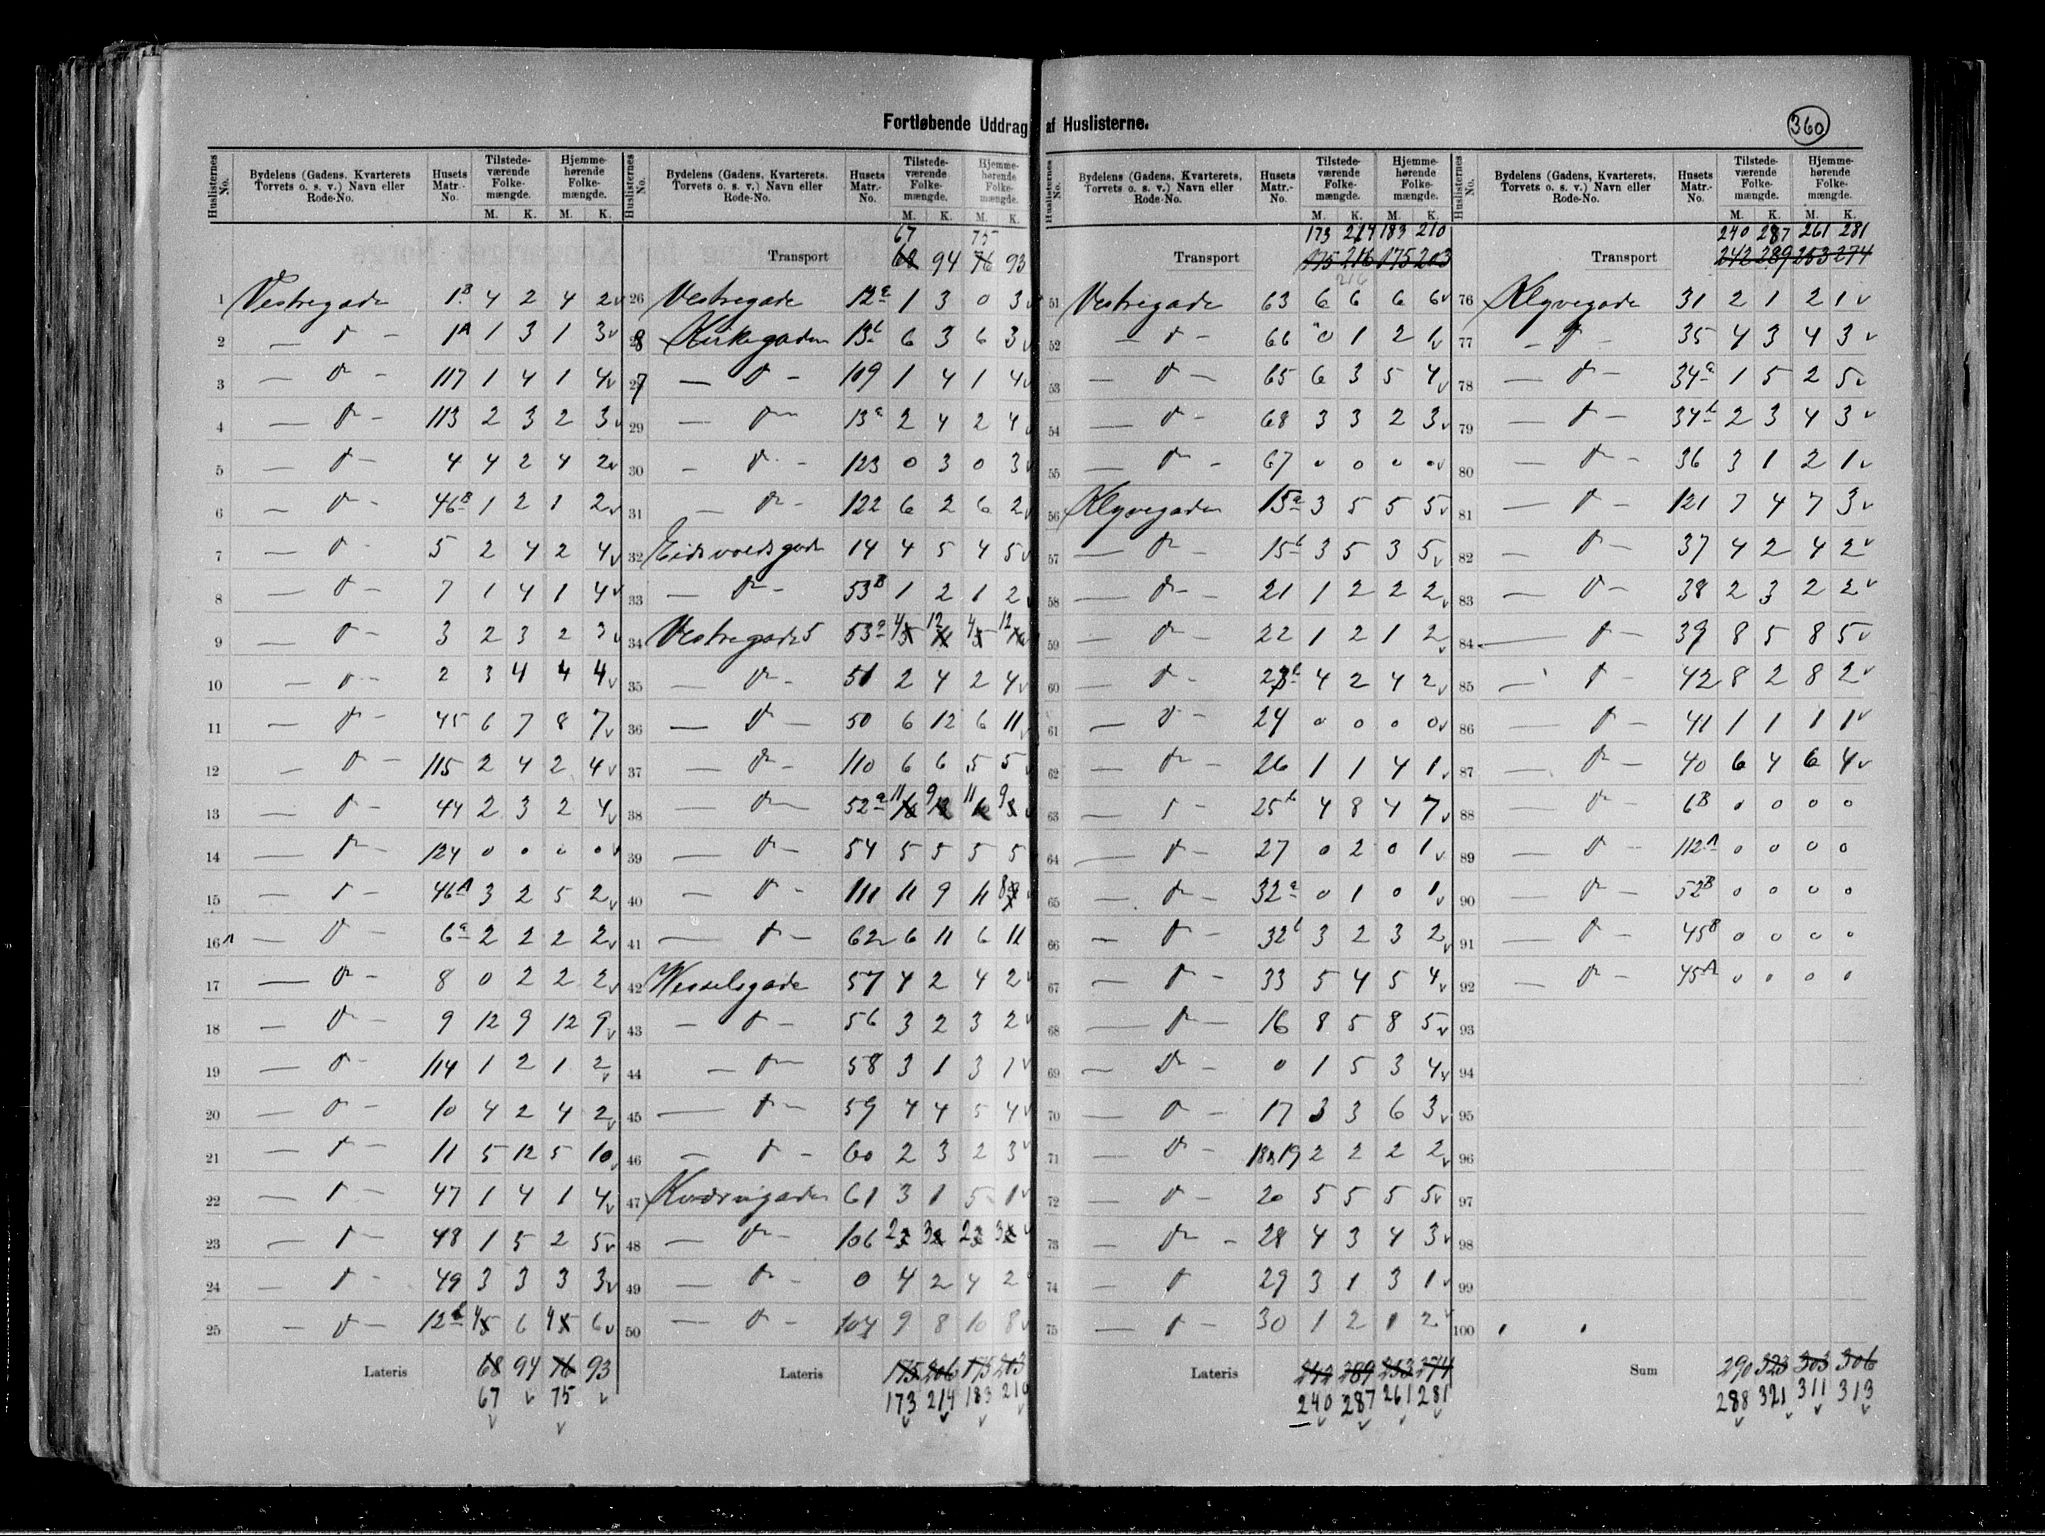 Fortløbende Uddrag af Huslisterne.
360
Huslisternes No. | Bydelens (Gadens, Kvarterets, Torvets o. s. v.) Navn eller Rode-No. | Husets Matr.-No. | Tilstedeværende Folkemængde. M. K. | Hjemmehørende Folkemængde. M. K.
1 Vestregade 1B 4 2 4 2
2 — d — 1A 1 3 1 3
3 — d — 117 1 4 1 4
4 — d — 113 2 3 2 3
5 — d — 4 4 2 4 2
6 — d — 46B 1 2 1 2
7 — d — 5 2 4 2 4
8 — d — 7 1 4 1 4
9 — d — 3 2 3 2 3
10 — d — 2 3 4 4 4
11 — d — 45 6 7 8 7
12 — d — 115 2 4 2 4
13 — d — 44 2 3 2 4
14 — d — 124 0 0 0 0
15 — d — 46A 3 2 5 2
16 — d — 6a 2 2 2 2
17 — d — 8 0 2 2 2
18 — d — 9 12 9 12 9
19 — d — 114 1 2 1 2
20 — d — 10 4 2 4 2
21 — d — 11 5 12 5 10
22 — d — 47 1 4 1 4
23 — d — 48 1 5 2 5
24 — d — 49 3 3 3 3
25 — d — 12b 4 6 4 6
Lateris 68 94 76 93
67 75
67 75
Transport 68 94 76 93
26 Vestregade 12a 1 3 0 3
28 Kirkegaden 13b 6 3 6 3
27 — d — 109 1 4 1 4
29 — d — 13a 2 4 2 4
30 — d — 123 0 3 0 3
31 — d — 122 6 2 6 2
32 Eidsvoldsgade 14 4 5 4 5
33 — d — 53B 1 2 1 2
34 Vestregade 5 53a 4 12 4 12
35 — d — 51 2 4 2 4
36 — d — 50 6 12 6 11
37 — d — 110 6 6 5 5
38 — d — 52a 11 9 11 9
39 — d — 54 5 5 5 5
40 — d — 111 11 9 11 8
41 — d — 62 6 11 6 11
42 Wesselsgade 57 4 2 4 2
43 — d — 56 3 2 3 2
44 — d — 58 3 1 3 1
45 — d — 59 4 4 5 4
46 — d — 60 2 3 2 3
47 61 3 1 5 1
48 — d — 106 2 3 2 3
49 — d — 0 4 2 4 2
50 — d — 107 9 8 10 8
Lateris 175 206 175 203
173 214 183 210
173 214 183 210
Transport 175 216 175 203
216
51 Vestregade 63 6 6 6 6
52 — d — 66 0 1 2 1
53 — d — 65 6 3 5 4
54 — d — 68 3 3 2 3
55 — d — 67 0 0 0 0
56 Klyvegaden 15a 3 5 5 5
57 — d — 15b 3 5 3 5
58 — d — 21 1 2 2 2
59 — d — 22 1 2 1 2
60 — d — 23b 4 2 4 2
61 — d — 24 0 0 0 0
62 — d — 26 1 1 4 1
63 — d 25b 4 8 4 7
64 — d — 27 0 2 0 1
65 — d — 32a 0 1 0 1
66 — d — 32b 3 2 3 2
67 — d — 33 5 4 5 4
68 — d — 16 8 5 8 5
69 — d — 0 1 5 3 4
70 — d — 17 3 3 6 3
71 — d — 18 19 2 2 2 2
72 — d — 20 5 5 5 5
73 — d — 28 4 3 4 3
74 — d 29 3 1 3 1
75 — d — 30 1 2 1 2
Lateris 242 289 253 274
240 287 261 281
240 287 261 281
Transport 242 289 253 274
76 Klyvegade 31 2 1 2 1
77 — d — 35 4 3 4 3
78 — d — 34a 1 5 2 5
79 — d — 34b 2 3 4 3
80 — d — 36 3 1 2 1
81 — d — 121 7 4 7 3
82 — d — 37 4 2 4 2
83 — d — 38 2 3 2 2
84 — d — 39 8 5 8 5
85 — d — 42 8 2 8 2
86 — d — 41 1 1 1 1
87 — d — 40 6 4 6 4
88 — d — 6B 0 0 0 0
89 — d — 112A 0 0 0 0
90 — d — 52B 0 0 0 0
91 — d — 45B 0 0 0 0
92 — d — 45A 0 0 0 0
93
94
95
96
97
98
99
100
Sum 290 323 303 306
288 321 311 313